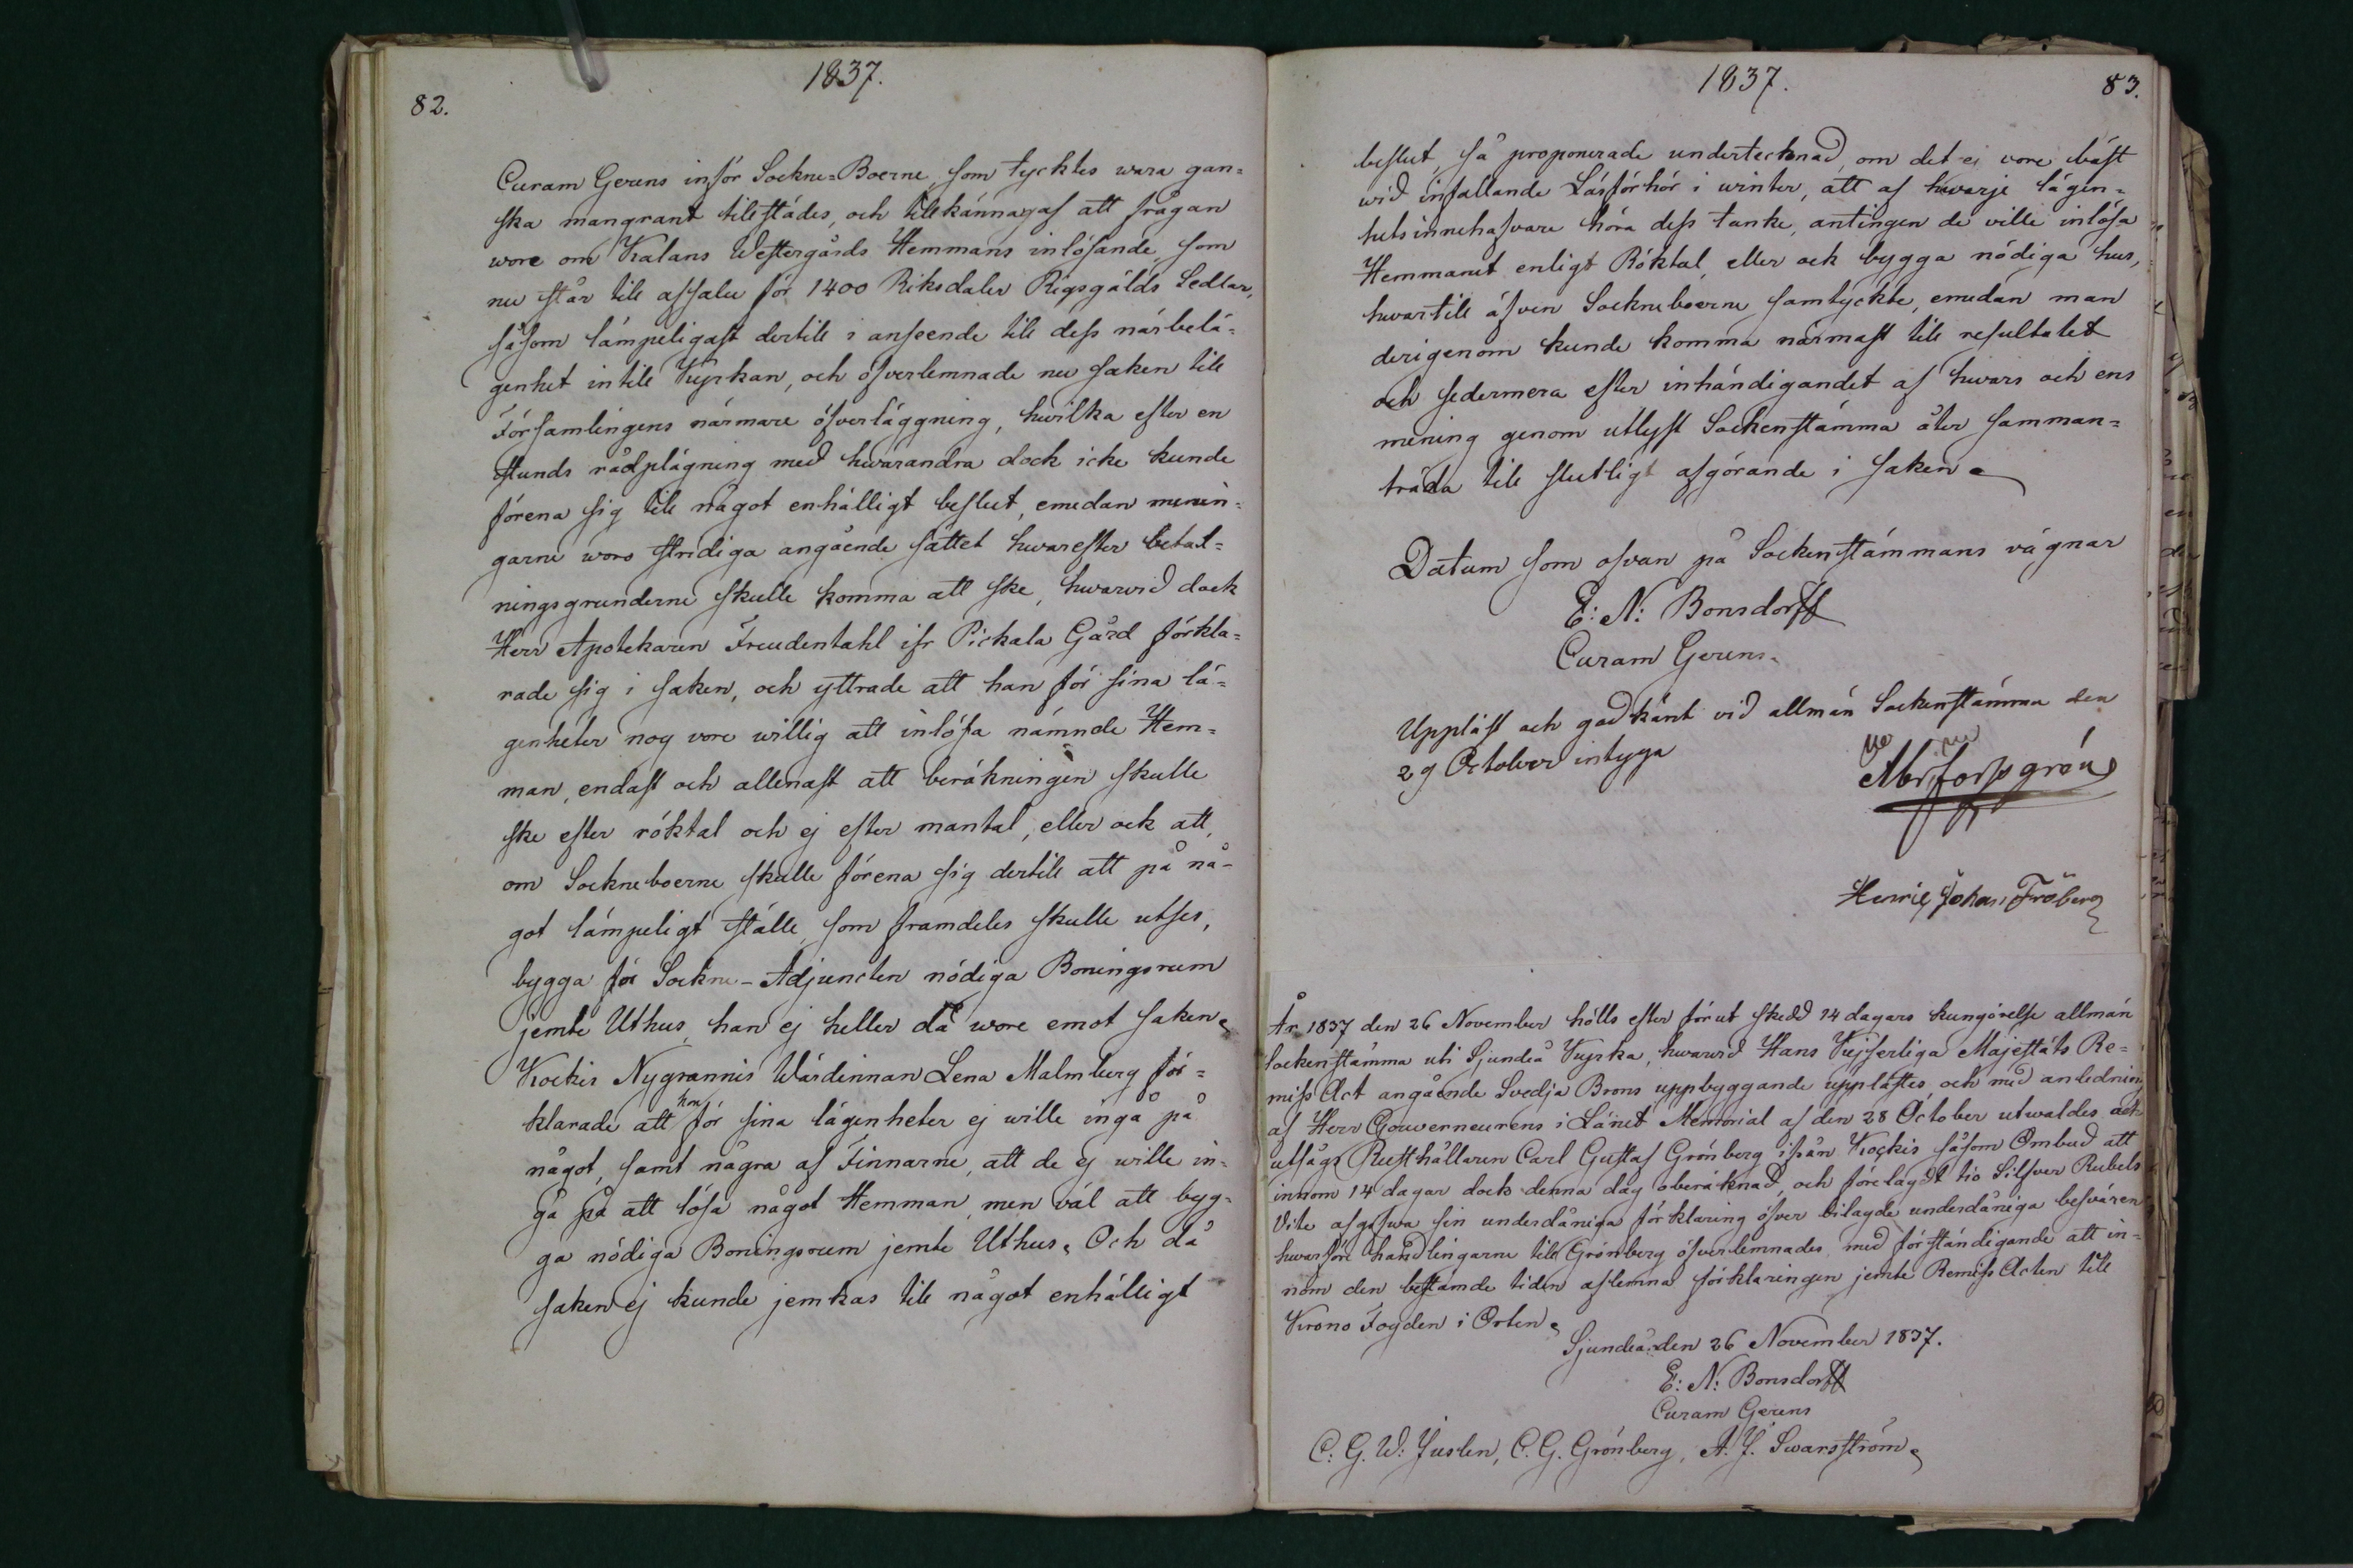 1837.
82.
Curam Gerens inför Sockne=Boerne, som tycktes wara gan=
ska mangrant tilstädes, och tilkännagaf att frågan
wore om Kalans Westergårds Hemmans inlösande, som
nu står till afsalu för 1400 Riksdaler Rigsgälds Sedlar,
såsom lämpeligast dertill i anseende till dess närbelä=
genhet intill Kyrkan, och öfverlemnade nu saken till
Församlingens närmare öfverläggning, hvilka efter en
stunds rådplägning med hwarandra dock icke kunde
förena sig till något enhälligt beslut, emedan menin=
garne woro stridiga angående sättet hwarefter betal=
ningsgrunderne skulle komma att ske, hwarvid dock
Herr Apotekaren Freudentahl ifr Pickala Gård förkla=
rade sig i saken, och yttrade att han för sina lä=
genheter nog vore willig att inlösa nämnde Hem=
man, endast och allenast att beräkningen skulle
ske efter röktal och ej efter mantal, eller ock att,
om Sockneboerne skulle förena sig dertill att på nå=
got lämpeligt ställe, som framdeles skulle utses,
bygga för Sockne-Adjuncten nödiga Boningsrum
jemte Uthus, han ej heller då wore emot saken.
Kockis Nygrannis Wärdinnan Lena Malmberg för=
klarade att hon för sina lägenheter ej wille ingå på
något, samt några af Finnarne, att de ej wille in=
gå på att lösa något Hemman, men väl att byg=
ga nödiga Boningsrum jemte Uthus. Och då
saken ej kunde jemkas till något enhälligt
1837.
83.
beslut, så proponerade undertecknad, om det ei vore bäst
wid infallande Läsförhör i winter, att af hwarje lägen=
hetsinnehafvare höra dess tanke, antingen de ville inlösa
Hemmanet enligt Röktal, eller ock bygga nödiga hus,
hwartill äfven Sockneboerne samtyckte, emedan man
derigenom kunde komma närmast till resultatet
och sedermera efter inhändigandet af hwars och ens
mening genom utlyst Sockenstämma åter samman=
träda till slutligt afgörande i saken.
Datum som ofvan på Sockenstämmans vägnar
E: N: Bonsdorff
Curam Gerens.
Uppläst och godkänt vid allmän Sockenstämma den
29 October intyga
Abr, forssgrén
Henric Johan Fröberg
År 1837 den 26 November hölls efter förut skedd 14 dagars kungörelse allmän
Sockenstämma uti Sjundeå Kyrka, hwarvid Hans Kejserliga Majestäts Re=
miss Act angående Svedja Brons uppbyggande upplästes och med anledning
af Herr Gouverneurens i Länet Memorial af den 28 October utwaldes och
utsågs Rusthållaren Carl Gustaf Grönberg ifrån Kockis såsom Ombud att
innom 14 dagar dock denna dag oberäknad, och förelagdt tio Silfver Rubels
Vite afgifwa sin underdåniga förklaring öfver bilagde underdåniga besvären
hwarföre handlingarne till Grönberg öfverlemnades med förständigande att in=
nom den bestämde tiden aflemna förklaringen jemte Remiss Acten till
Krono Fogden i Orten.
Sjundeå den 26 November 1837.
E: N: Bonsdorff
Curam Gerens
C: G. W: Juslen, C. G. Grönberg, A. J. Swarsström.